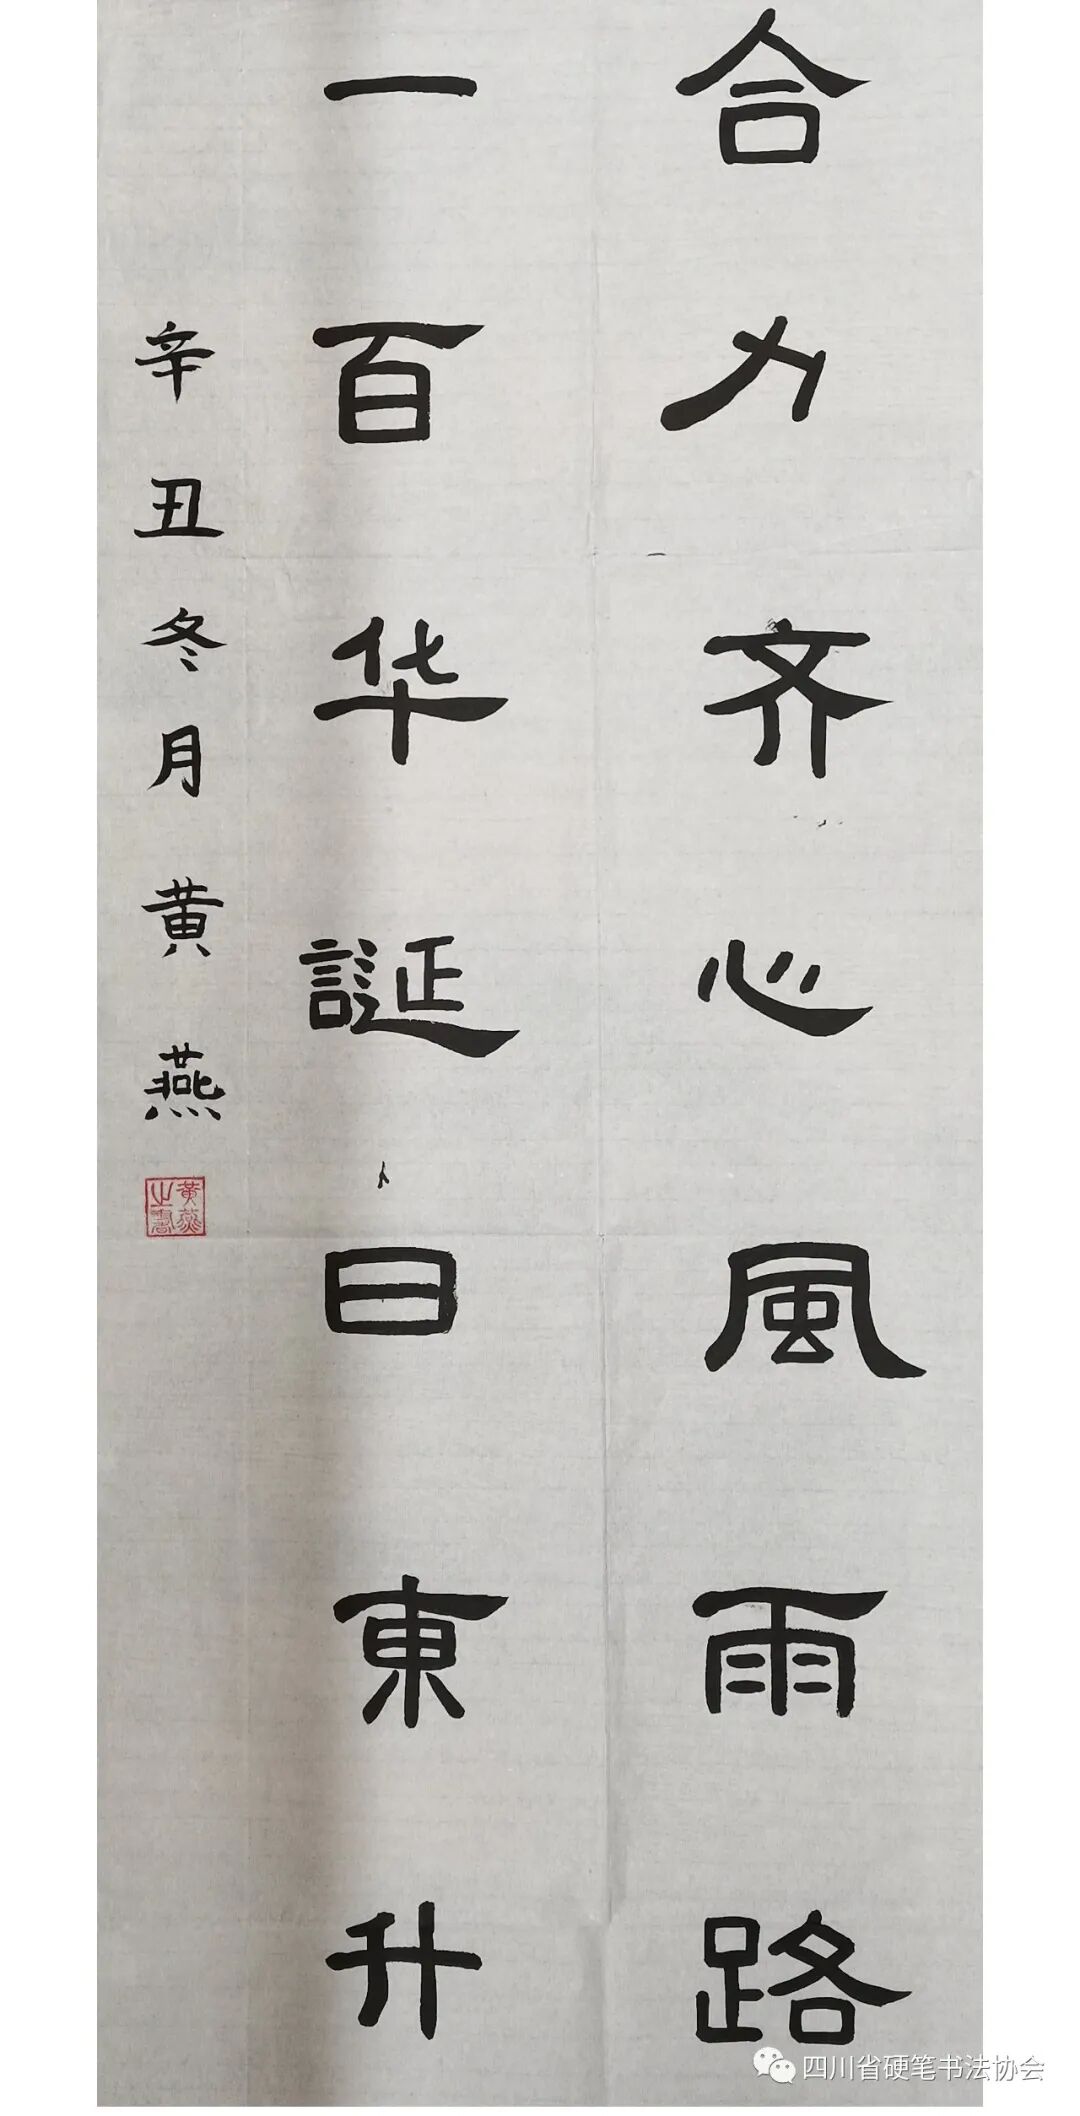 合力齐心風雨路
一百华誕日東升
辛丑冬月黄燕
黃燕之書
四川省硬笔书法协会